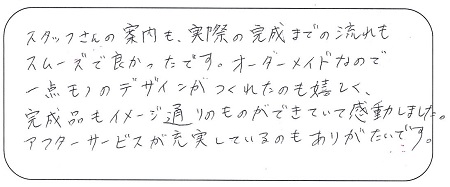 スタッフさんの案内も、実際の完成までの流れも
スムーズで良かったです。オーダーメイドなので
一点モノのデザインがつくれたのも嬉しく、
完成品もイメージ通りのものができていて感動しました。
アフターサービスが充実しているのもありがたいです。